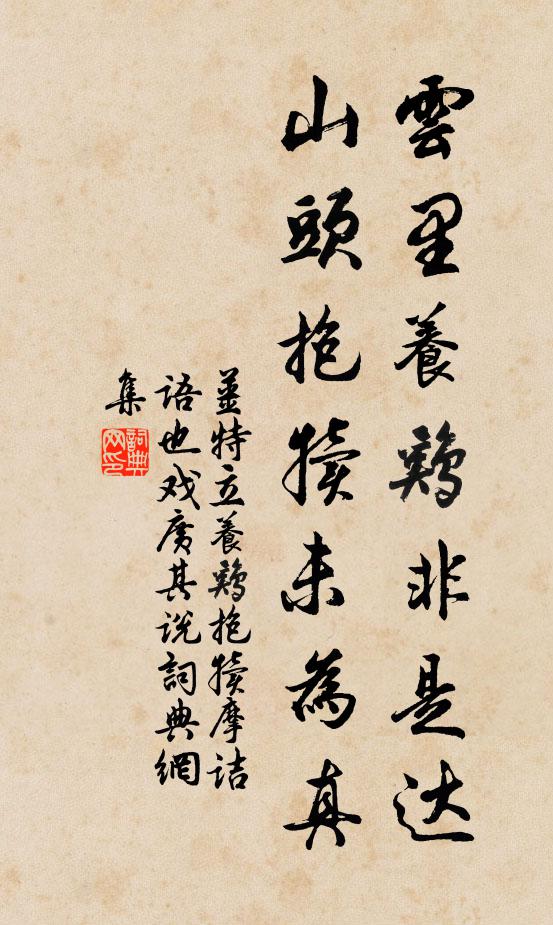 雲里養鷄非是达
山頭抱犢未為真
姜特立養鷄抱犢摩詰
語也戏廣其说詞典網
集
詞典
网印